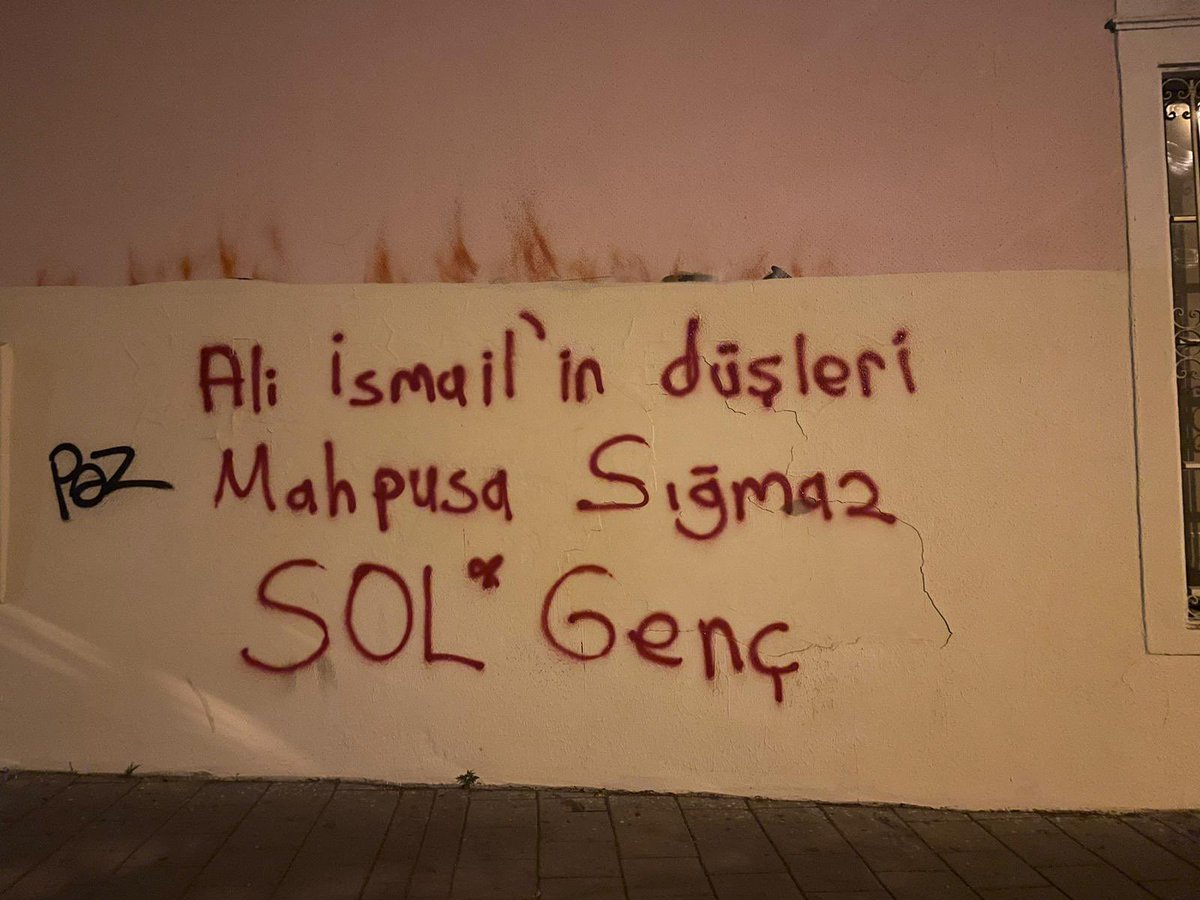 Ali İsmail'in düşleri
Mahpusa Sığmaz
SOL* Genç
Paz